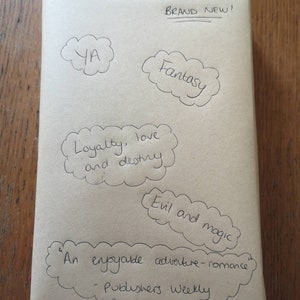 BRAND NEW!
YA
Fantasy
Loyalty, love
and destiny
Evil and magic
"An enjoyable adventure-romance"
- Publishers Weekly